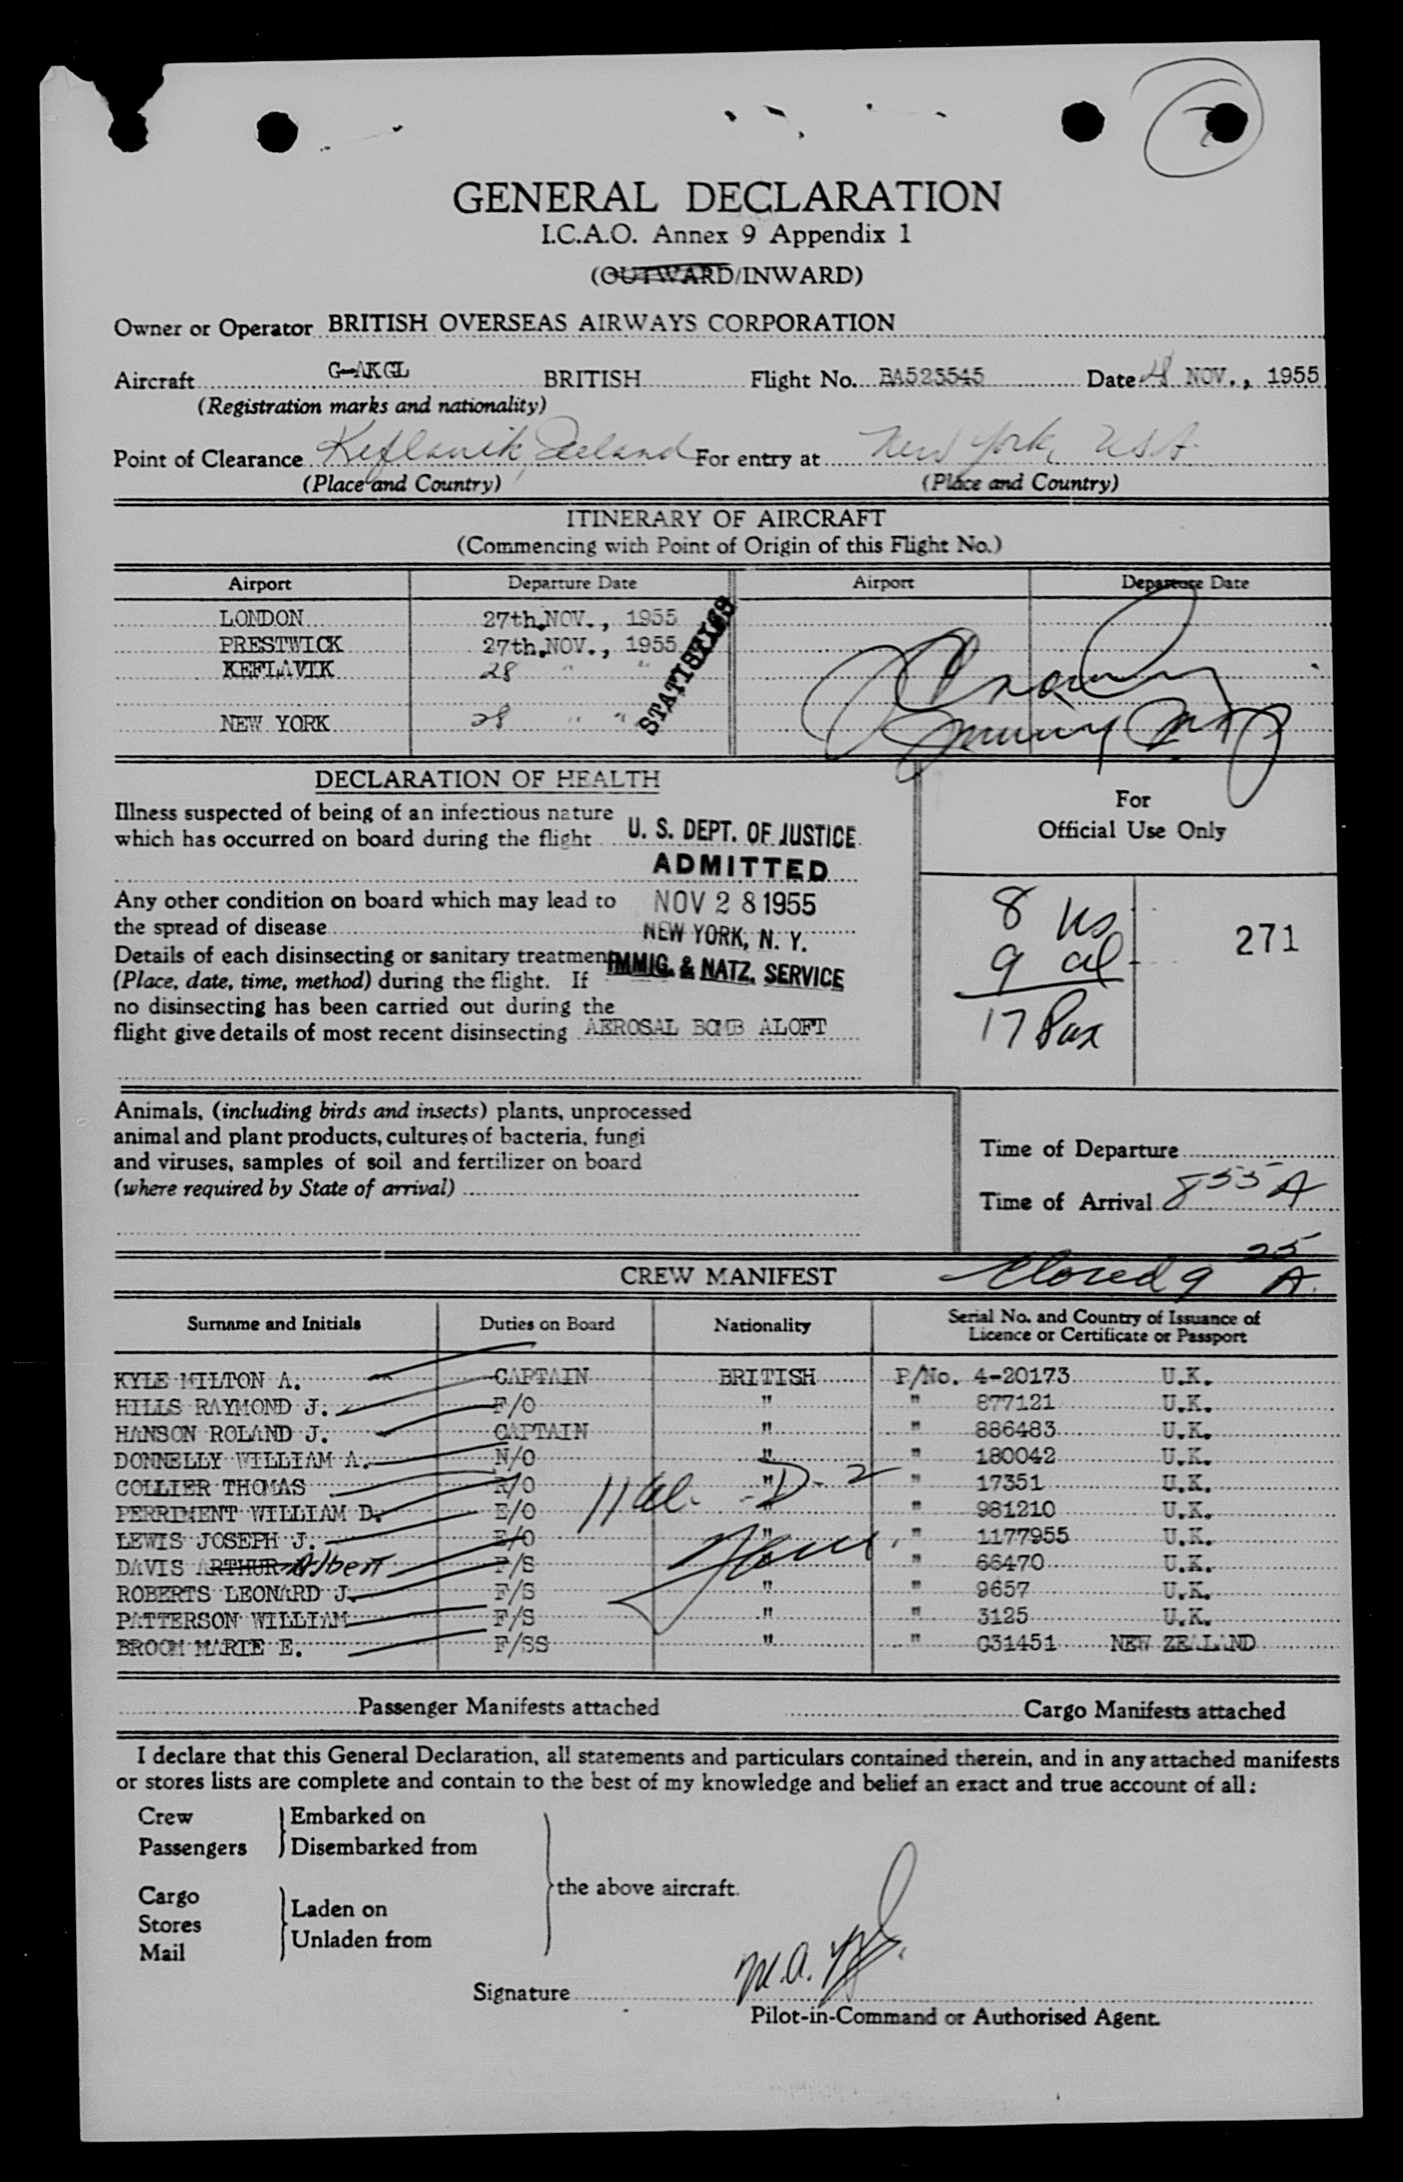 GENERAL DECLARATION
I.C.A.O. Annex 9 Appendix 1
(OUTWARD/INWARD)
Owner or Operator BRITISH OVERSEAS AIRWAYS CORPORATION
Aircraft G-AKGL BRITISH Flight No. BA523545 Date 28 NOV., 1955
(Registration marks and nationality)
Point of Clearance Keflavik, Iceland For entry at New York, USA
(Place and Country) (Place and Country)
ITINERARY OF AIRCRAFT
(Commencing with Point of Origin of this Flight No.)
Airport Departure Date Airport Departure Date
LONDON 27th.NOV., 1955
PRESTWICK 27th.NOV., 1955
KEFLAVIK 28 " "
NEW YORK 28 " "
STATISTICS
DECLARATION OF HEALTH
Illness suspected of being of an infectious nature
which has occurred on board during the flight
U. S. DEPT. OF JUSTICE
ADMITTED
NOV 28 1955
NEW YORK, N. Y.
IMMIG. & NATZ. SERVICE
Any other condition on board which may lead to
the spread of disease
Details of each disinsecting or sanitary treatment
(Place, date, time, method) during the flight. If
no disinsecting has been carried out during the
flight give details of most recent disinsecting AEROSAL BOMB ALOFT
For
Official Use Only
8 us
9 al
17 Pax
271
Animals, (including birds and insects) plants, unprocessed
animal and plant products, cultures of bacteria, fungi
and viruses, samples of soil and fertilizer on board
(where required by State of arrival)
Time of Departure
Time of Arrival 8 55 A
CREW MANIFEST Closed 9 25 A.
Surname and Initials Duties on Board Nationality Serial No. and Country of Issuance of
Licence or Certificate or Passport
KYLE MILTON A. CAPTAIN BRITISH P/No. 4-20173 U.K.
HILLS RAYMOND J. F/O " " 877121 U.K.
HANSON ROLAND J. CAPTAIN " " 886483 U.K.
DONNELLY WILLIAM A. N/O " " 180042 U.K.
COLLIER THOMAS R/O " " 17351 U.K.
PERRIMENT WILLIAM D. E/O " " 981210 U.K.
LEWIS JOSEPH J. E/O " " 1177955 U.K.
DAVIS ARTHUR Albert F/S " 66470 U.K.
ROBERTS LEONARD J. F/S " " 9657 U.K.
PATTERSON WILLIAM F/S " " 3125 U.K.
BROOM MARIE E. F/SS " " C31451 NEW ZEALAND
11 al. - D-2
Passenger Manifests attached Cargo Manifests attached
I declare that this General Declaration, all statements and particulars contained therein, and in any attached manifests
or stores lists are complete and contain to the best of my knowledge and belief an exact and true account of all:
Crew Embarked on
Passengers Disembarked from
the above aircraft.
Cargo
Stores Laden on
Mail Unladen from
Signature M.A. Kyle
Pilot-in-Command or Authorised Agent.